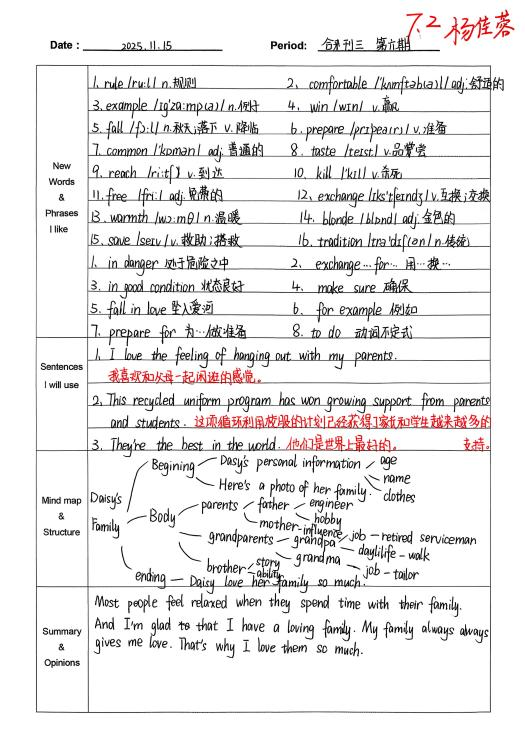 7.2 杨佳蓉
Date : 2025.11.15 Period: 合禾刊三 第六期
New Words & Phrases I like
1. rule /ruːl/ n.规则 2. comfortable /'kʌmftəb(ə)l/ adj.舒适的
3. example /ɪg'zɑːmp(ə)l/ n.例子 4. win /wɪn/ v.赢
5. fall /fɔːl/ n.秋天;落下 v.降临 6. prepare /prɪpeə(r)/ v.准备
7. common /'kɒmən/ adj.普通的 8. taste /teɪst/ v.品尝
9. reach /riːtʃ/ v.到达 10. kill /'kɪl/ v.杀死
11. free /friː/ adj.免费的 12. exchange /ɪks'tʃeɪndʒ/ v.互换;交换
13. warmth /wɔːmθ/ n.温暖 14. blonde /blɒnd/ adj.金色的
15. save /seɪv/ v.救助;搭救 16. tradition /trə'dɪʃ(ə)n/ n.传统
1. in danger 处于危险之中 2. exchange…for… 用…换…
3. in good condition 状态良好 4. make sure 确保
5. fall in love 坠入爱河 6. for example 例如
7. prepare for 为…做准备 8. to do 动词不定式
Sentences I will use
1. I love the feeling of hanging out with my parents.
我喜欢和父母一起闲逛的感觉。
2. This recycled uniform program has won growing support from parents
and students. 这项循环利用校服的计划已经获得了家长和学生越来越多的
支持。
3. They're the best in the world. 他们是世界上最好的。
Mind map & Structure
Daisy's Family
Begining
Dasy's personal information
age
name
clothes
Here's a photo of her family.
Body
parents
father
engineer
hobby
mother
influence
grandparents
grandpa
job - retired serviceman
daylilife - walk
grandma
job - tailor
brother
story
ability
ending
Daisy love her family so much.
Summary & Opinions
Most people feel relaxed when they spend time with their family.
And I'm glad to that I have a loving family. My family always always
gives me love. That's why I love them so much.